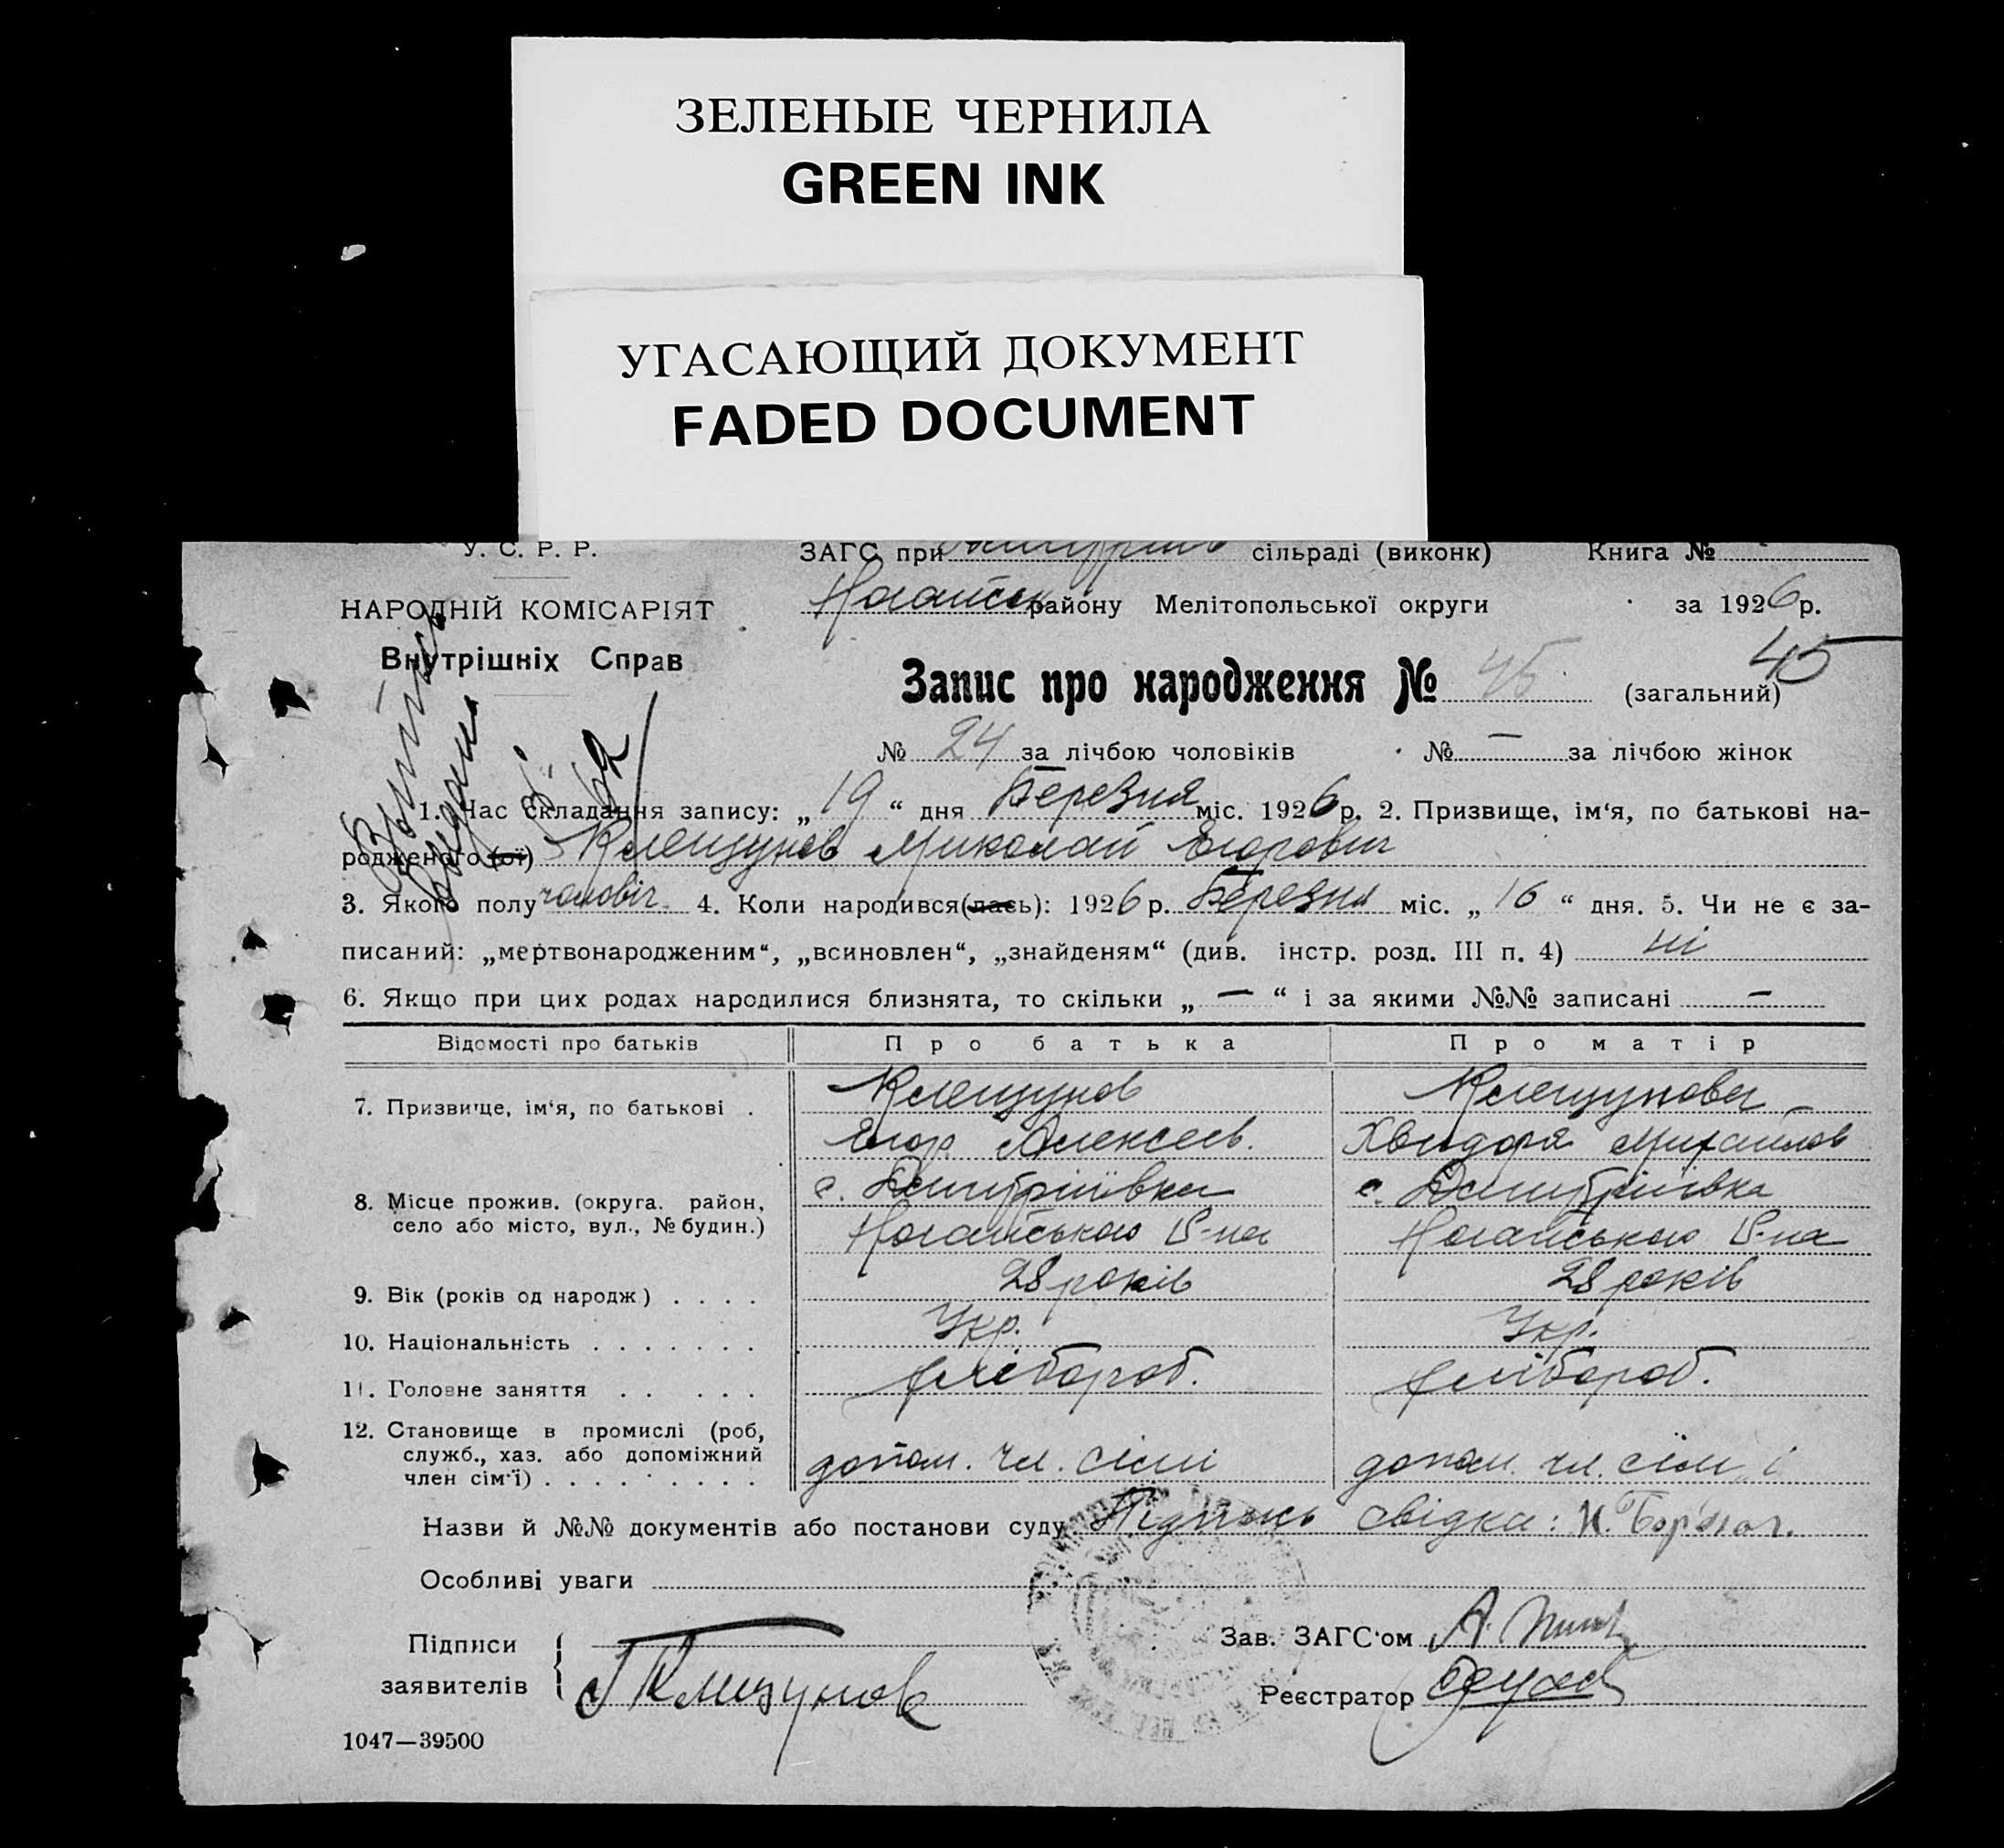 ЗЕЛЕНЫЕ ЧЕРНИЛА
GREEN INK
УГАСАЮЩИЙ ДОКУМЕНТ
FADED DOCUMENT
У. С. Р. Р.
ЗАГС при сільраді (виконк) Книга №
НАРОДНІЙ КОМІСАРІЯТ
Внутрішніх Справ
Ногайськ району Мелітопольської округи за 1926 р.
Запис про народження № 45 (загальний) 45
№ 24 за лічбою чоловіків № — за лічбою жінок
1. Час складання запису: „19“ дня Березня міс. 1926 р. 2. Призвище, ім‘я, по батькові на-
родженого (ої) Клещунов Миколай Егорович
3. Якого полу чоловіч. 4. Коли народився(лась): 1926 р. Березня міс. „16“ дня. 5. Чи не є за-
писаний: „мертвонародженим“, „всиновлен“, „знайденям“ (див. інстр. розд. III п. 4) ні
6. Якщо при цих родах народилися близнята, то скільки „—“ і за якими №№ записані —
Відомості про батьків Про батька Про матір
7. Призвище, ім‘я, по батькові . Клещунов Клещунова
Егор Алексеев. Хвидоря Михаилов
8. Місце прожив. (округа. район, село або місто, вул., № будин.) с. Дмитріівка с. Дмитріівка
Ногайського Р-на Ногайського Р-на
9. Вік (років од народж) . . . . 28 років 28 років
10. Національність . . . . . . . Укр. Укр.
11. Головне заняття . . . . . хлібороб. хлібороб.
12. Становище в промислі (роб, служб., хаз. або допоміжний член сім‘ї) . . . . . . . . . допом. чл. сімі допом. чл. сім'і
Назви й №№ документів або постанови суду Підпись свідка:
Особливі уваги
Підписи
заявителів
Клещунов
Зав. ЗАГС‘ом А.
Реєстратор
1047—39500